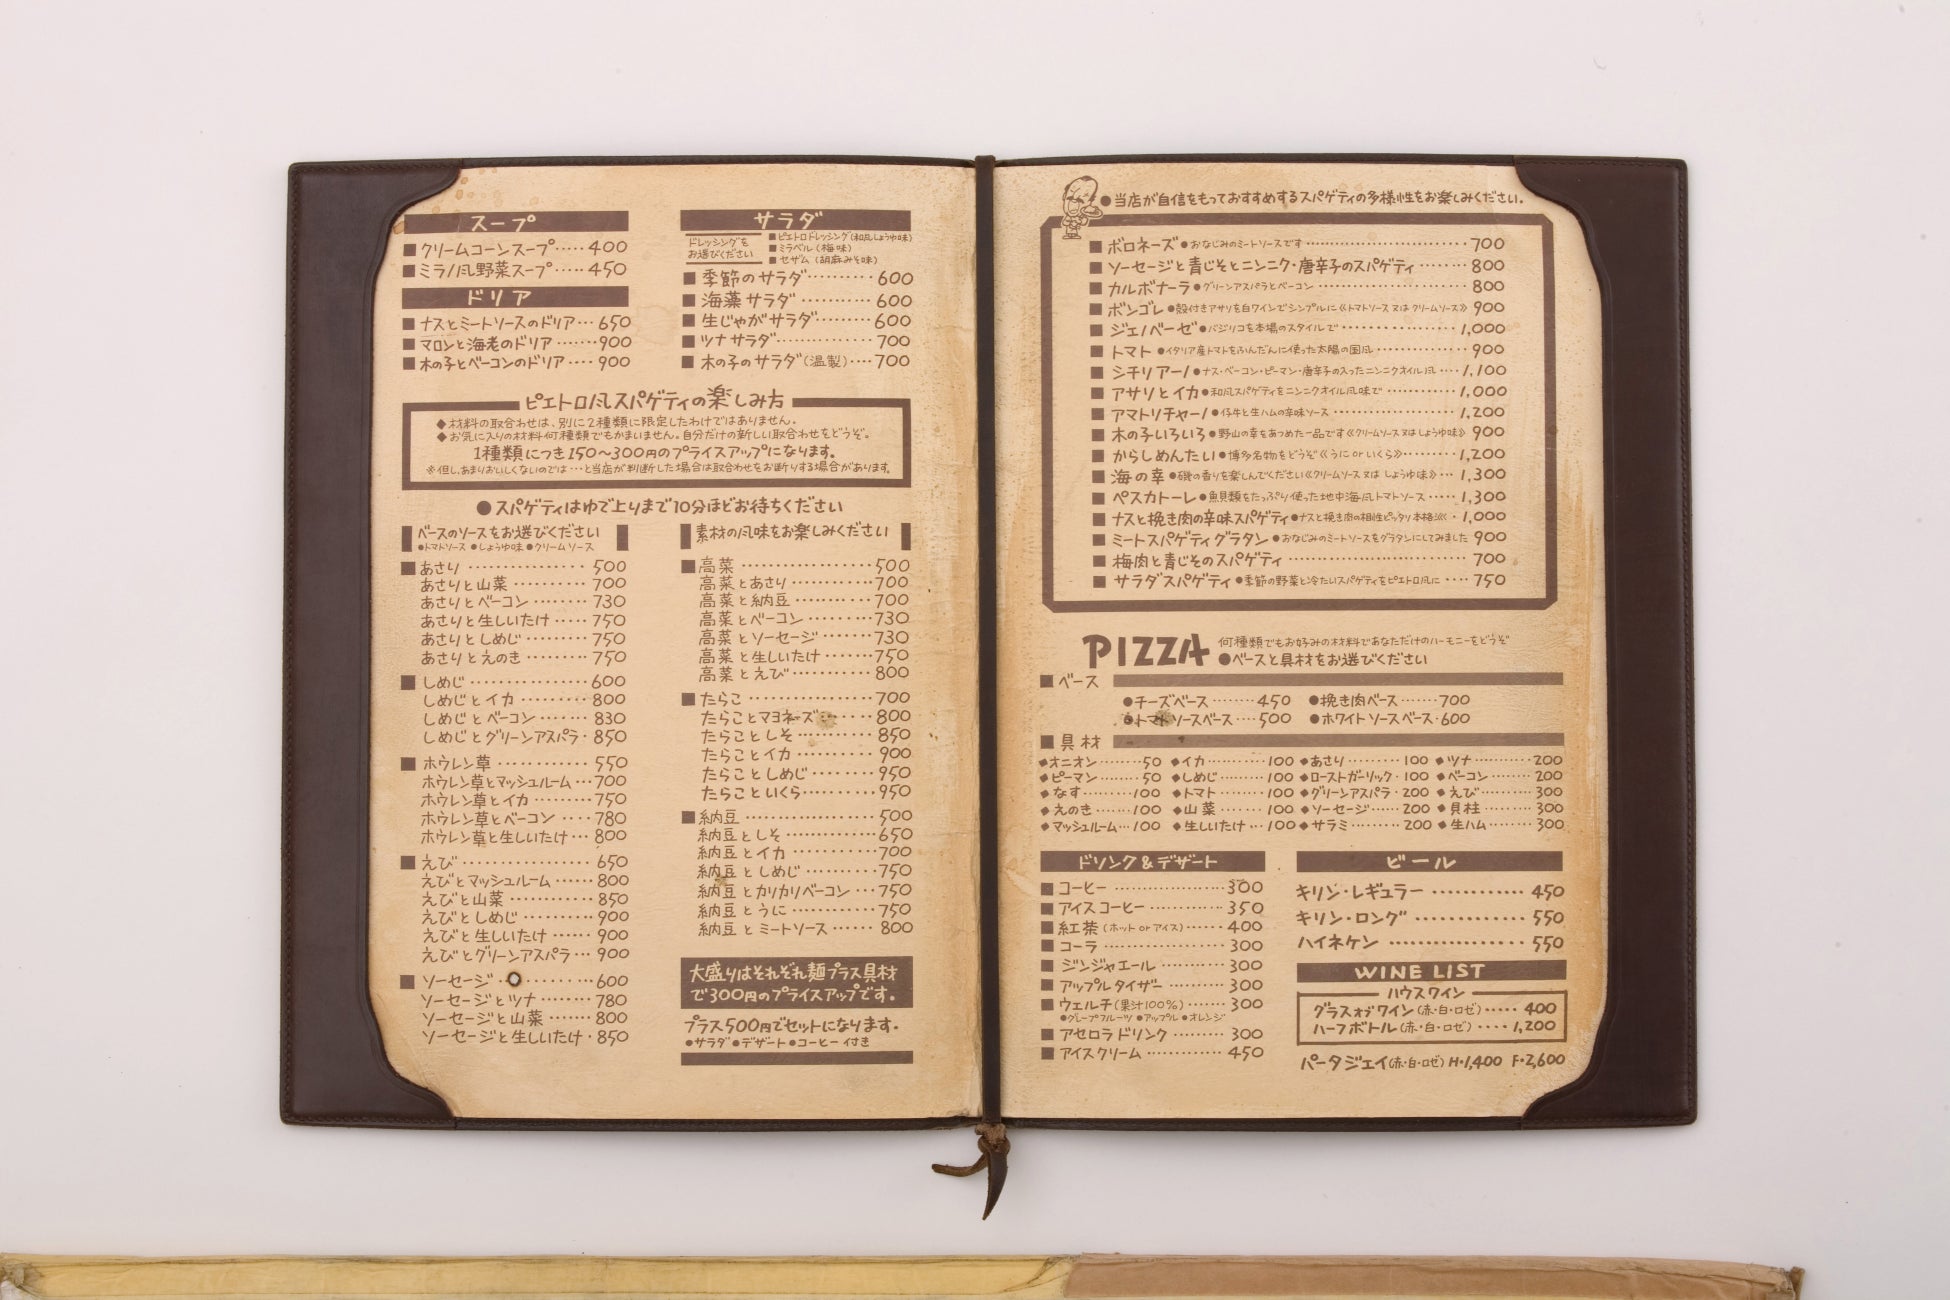 スープ
■クリームコーンスープ‥‥‥400
■ミラノ風野菜スープ‥‥‥450
ドリア
■ナスとミートソースのドリア‥‥650
■マロンと海老のドリア‥‥‥900
■木の子とベーコンのドリア‥‥900
サラダ
ドレッシングを
お選びください
■ピエトロドレッシング(和風しょうゆ味)
■ミラベル(梅味)
■セザム(胡麻みそ味)
■季節のサラダ‥‥‥600
■海藻サラダ‥‥‥600
■生じゃがサラダ‥‥‥600
■ツナサラダ‥‥‥700
■木の子のサラダ(温製)‥‥700
ピエトロ風スパゲティの楽しみ方
◆材料の取合わせは、別に2種類に限定したわけではありません。
◆お気に入りの材料何種類でもかまいません。自分だけの新しい取合わせをどうぞ。
1種類につき150〜300円のプライスアップになります。
※但し、あまりおいしくないのでは…と当店が判断した場合は取合わせをお断りする場合があります。
●スパゲティはゆで上りまで10分ほどお待ちください
ベースのソースをお選びください
●トマトソース ●しょうゆ味 ●クリームソース
■あさり‥‥‥500
あさりと山菜‥‥‥700
あさりとベーコン‥‥‥730
あさりと生しいたけ‥‥‥750
あさりとしめじ‥‥‥750
あさりとえのき‥‥‥750
■しめじ‥‥‥600
しめじとイカ‥‥‥800
しめじとベーコン‥‥‥830
しめじとグリーンアスパラ・850
■ホウレン草‥‥‥550
ホウレン草とマッシュルーム‥‥700
ホウレン草とイカ‥‥‥750
ホウレン草とベーコン‥‥‥780
ホウレン草と生しいたけ‥‥800
■えび‥‥‥650
えびとマッシュルーム‥‥‥800
えびと山菜‥‥‥850
えびとしめじ‥‥‥900
えびと生しいたけ‥‥‥900
えびとグリーンアスパラ‥‥900
■ソーセージ‥‥‥600
ソーセージとツナ‥‥‥780
ソーセージと山菜‥‥‥800
ソーセージと生しいたけ・850
素材の風味をお楽しみください
■高菜‥‥‥500
高菜とあさり‥‥‥700
高菜と納豆‥‥‥700
高菜とベーコン‥‥‥730
高菜とソーセージ‥‥‥730
高菜と生しいたけ‥‥‥750
高菜とえび‥‥‥800
■たらこ‥‥‥700
たらことマヨネーズ‥‥‥800
たらことしそ‥‥‥850
たらことイカ‥‥‥900
たらことしめじ‥‥‥950
たらこといくら‥‥‥950
■納豆‥‥‥500
納豆としそ‥‥‥650
納豆とイカ‥‥‥700
納豆としめじ‥‥‥750
納豆とカリカリベーコン‥‥750
納豆とうに‥‥‥750
納豆とミートソース‥‥‥800
大盛りはそれぞれ麺プラス具材
で300円のプライスアップです。
プラス500円でセットになります。
●サラダ●デザート●コーヒー付き
●当店が自信をもっておすすめするスパゲティの多様性をお楽しみください。
■ボロネーズ●おなじみのミートソースです‥‥‥700
■ソーセージと青じそとニンニク・唐辛子のスパゲティ‥‥‥800
■カルボナーラ●グリーンアスパラとベーコン‥‥‥800
■ボンゴレ●殻付きアサリを白ワインでシンプルに《トマトソース又はクリームソース》900
■ジェノベーゼ●バジリコを本場のスタイルで‥‥‥1,000
■トマト●イタリア産トマトをふんだんに使った太陽の国風‥‥‥900
■シチリアーノ●ナス・ベーコン・ピーマン・唐辛子の入ったニンニクオイル風‥‥1,100
■アサリとイカ●和風スパゲティをニンニクオイル風味で‥‥‥1,000
■アマトリチャーノ●仔牛と生ハムの辛味ソース‥‥‥1,200
■木の子いろいろ●野山の幸をあつめた一品です《クリームソース又はしょうゆ味》900
■からしめんたい●博多名物をどうぞ《うにorいくら》‥‥‥1,200
■海の幸●磯の香りを楽しんでください《クリームソース又はしょうゆ味》‥‥1,300
■ペスカトーレ●魚貝類をたっぷり使った地中海風トマトソース‥‥‥1,300
■ナスと挽き肉の辛味スパゲティ●ナスと挽き肉の相性ピッタリ本格派・1,000
■ミートスパゲティグラタン●おなじみのミートソースをグラタンにしてみました900
■梅肉と青じそのスパゲティ‥‥‥700
■サラダスパゲティ●季節の野菜と冷たいスパゲティをピエトロ風に‥‥750
PIZZA 何種類でもお好みの材料であなただけのハーモニーをどうぞ
●ベースと具材をお選びください
■ベース
●チーズベース‥‥‥450 ●挽き肉ベース‥‥‥700
●トマトソースベース‥‥500 ●ホワイトソースベース・600
■具材
◆オニオン‥‥‥50 ◆イカ‥‥‥100 ◆あさり‥‥‥100 ◆ツナ‥‥‥200
◆ピーマン‥‥‥50 ◆しめじ‥‥‥100 ◆ローストガーリック・100 ◆ベーコン‥‥‥200
◆なす‥‥‥100 ◆トマト‥‥‥100 ◆グリーンアスパラ・200 ◆えび‥‥‥300
◆えのき‥‥‥100 ◆山菜‥‥‥100 ◆ソーセージ‥‥‥200 ◆貝柱‥‥‥300
◆マッシュルーム‥‥100 ◆生しいたけ‥‥100 ◆サラミ‥‥‥200 ◆生ハム‥‥‥300
ドリンク&デザート
■コーヒー‥‥‥300
■アイスコーヒー‥‥‥350
■紅茶(ホットorアイス)‥‥‥400
■コーラ‥‥‥300
■ジンジャエール‥‥‥300
■アップルタイザー‥‥‥300
■ウェルチ(果汁100%)‥‥‥300
●グレープフルーツ●アップル●オレンジ
■アセロラドリンク‥‥‥300
■アイスクリーム‥‥‥450
ビール
キリン・レギュラー‥‥‥450
キリン・ロング‥‥‥550
ハイネケン‥‥‥550
WINE LIST
ハウスワイン
グラスオブワイン(赤・白・ロゼ)‥‥‥400
ハーフボトル(赤・白・ロゼ)‥‥1,200
パータジェイ(赤・白・ロゼ)H・1,400 F・2,600